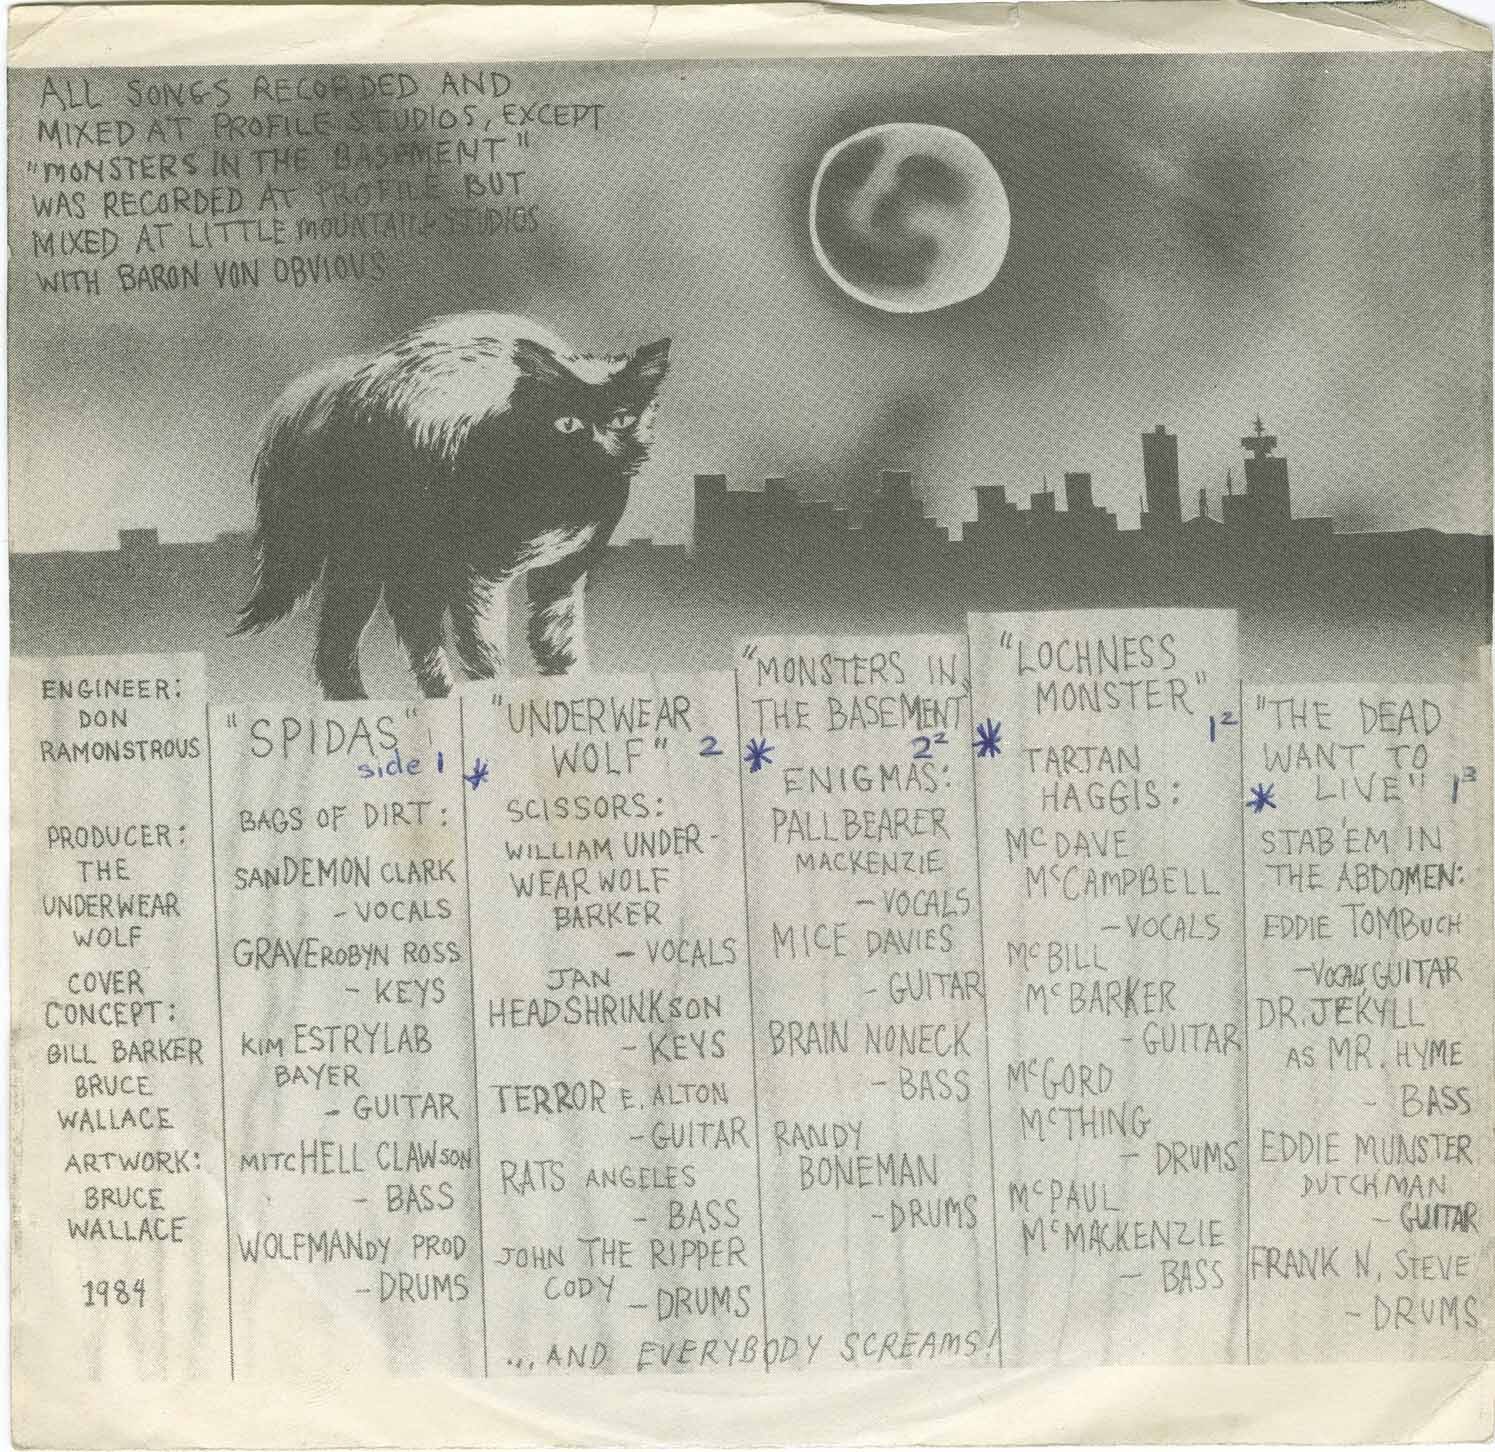 ALL SONGS RECORDED AND
MIXED AT PROFILE STUDIOS, EXCEPT
"MONSTERS IN THE BASEMENT"
WAS RECORDED AT PROFILE BUT
MIXED AT LITTLE MOUNTAIN STUDIOS
WITH BARON VON OBVIOUS
ENGINEER:
DON
RAMONSTROUS
PRODUCER:
THE
UNDERWEAR
WOLF
COVER
CONCEPT:
BILL BARKER
BRUCE
WALLACE
ARTWORK:
BRUCE
WALLACE
1984
"SPIDAS"
side 1
BAGS OF DIRT:
SANDEMON CLARK
- VOCALS
GRAVEROBYN ROSS
- KEYS
KIM ESTRYLAB
BAYER
- GUITAR
MITCHELL CLAWSON
- BASS
WOLFMANDY PROD
- DRUMS
"UNDERWEAR
WOLF" 2
*
SCISSORS:
WILLIAM UNDER-
WEAR WOLF
BARKER
- VOCALS
JAN
HEADSHRINKSON
- KEYS
TERROR E. ALTON
- GUITAR
RATS ANGELES
- BASS
JOHN THE RIPPER
CODY - DRUMS
"MONSTERS IN
THE BASEMENT
* 2²
ENIGMAS:
PALLBEARER
MACKENZIE
- VOCALS
MICE DAVIES
- GUITAR
BRAIN NONECK
- BASS
RANDY
BONEMAN
- DRUMS
"LOCHNESS
MONSTER"
* 1²
TARTAN
HAGGIS:
McDAVE
McCAMPBELL
- VOCALS
McBILL
McBARKER
- GUITAR
McGORD
McTHING
- DRUMS
McPAUL
McMACKENZIE
- BASS
"THE DEAD
WANT TO
* LIVE" 1³
STAB'EM IN
THE ABDOMEN:
EDDIE TOMBUCH
- VOCALS GUITAR
DR. JEKYLL
AS MR. HYME
- BASS
EDDIE MUNSTER
DUTCHMAN
- GUITAR
FRANK N. STEVE
- DRUMS
... AND EVERYBODY SCREAMS!